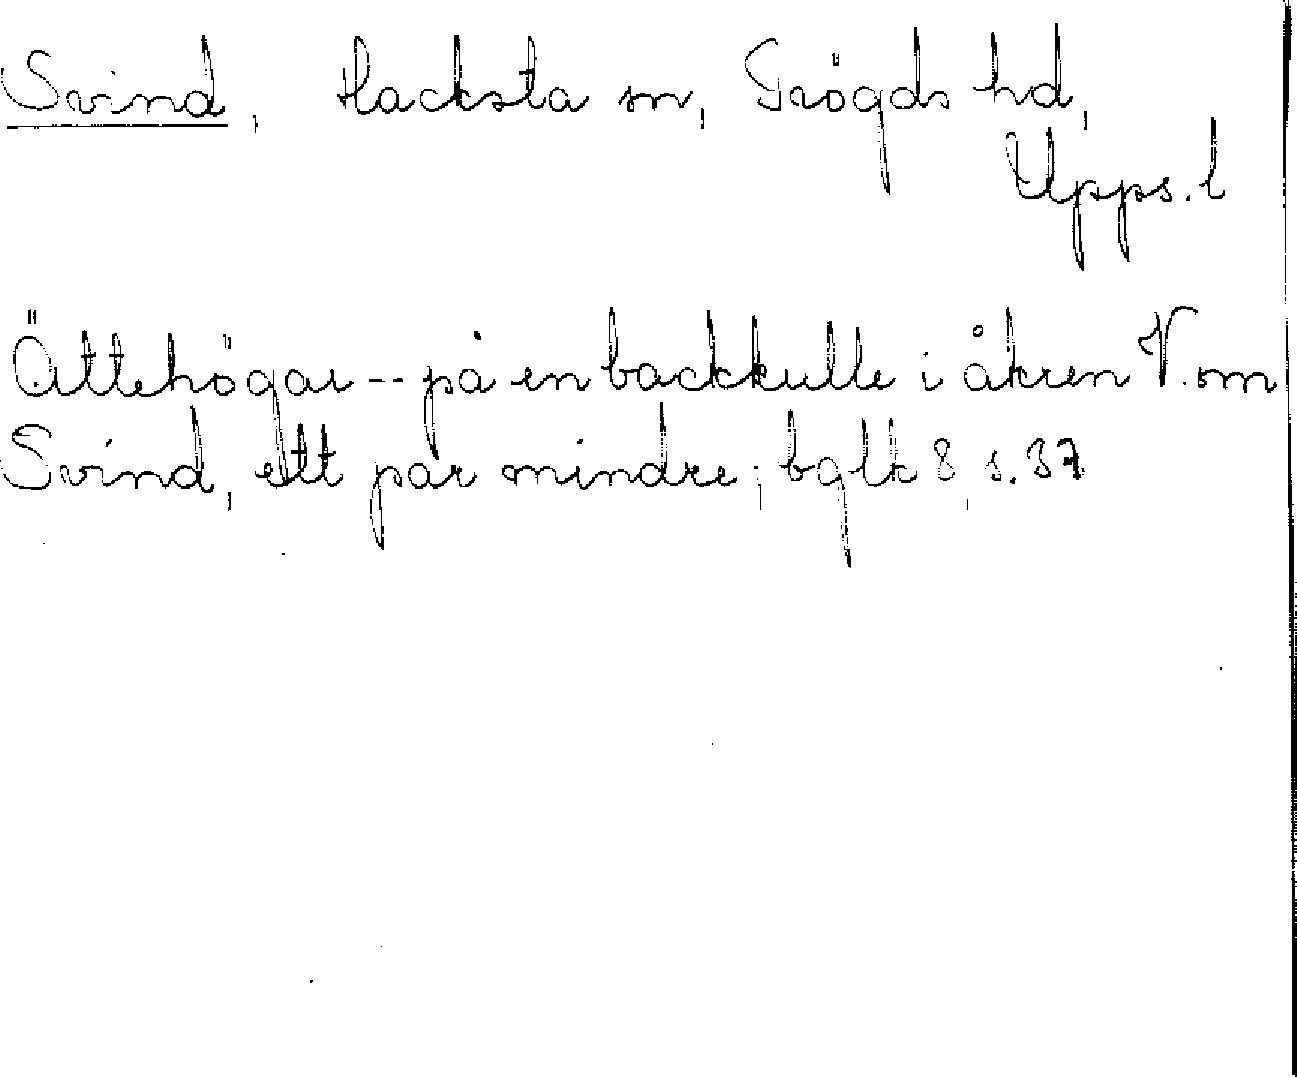 Svind, Hacksta sn, Trögds hd,
Upps. l
Ättehögar -- på en backkulle i åkren V. om
Svind, ett par mindre; bglk 8, s. 37